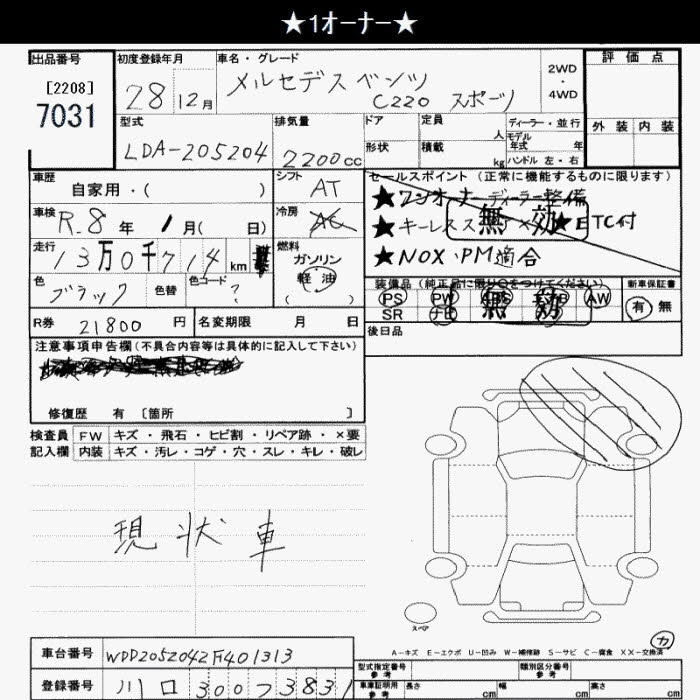 ★1オーナー★
出品番号
[2208]
7031
初度登録年月
28 12月
車名・グレード
メルセデスベンツ
C220 スポーツ
2WD
・
4WD
評価点
外装 内装
型式
LDA-205204
排気量
2200cc
ドア
形状
定員 人
積載 kg
ディーラー・並行
モデル
年式 年
ハンドル 左・右
車歴
自家用・( )
シフト
AT
車検
R.8年 1月( 日)
冷房
AC
走行
13万0千714km
燃料
ガソリン
軽油
( )
色
ブラック
色替
色コード
?
R券
21800円
名変期限 月 日
セールスポイント (正常に機能するものに限ります)
★ワンオーナーディーラー整備
★キーレス
無効
★ETC付
★NOX・PM適合
装備品 (純正品に限り○をつけてください)
PS PW AW
SR ナビ
無効
新車保証書
有・無
後日品
注意事項申告欄 (不具合内容等は具体的に記入して下さい)
修復歴 有 〔箇所 〕
検査員
記入欄
FW キズ・飛石・ヒビ割・リペア跡・×要
内装 キズ・汚レ・コゲ・穴・スレ・キレ・破レ
現状車
スペア
カ
A-キズ E-エクボ U-凹み W-補修跡 S-サビ C-腐食 XX-交換済
車台番号
WDD2052042F401313
登録番号
川口 300 フ 3831
型式指定番号
参考
類別区分番号
参考
車庫証明用
参考
長さ cm
幅 cm
高さ cm